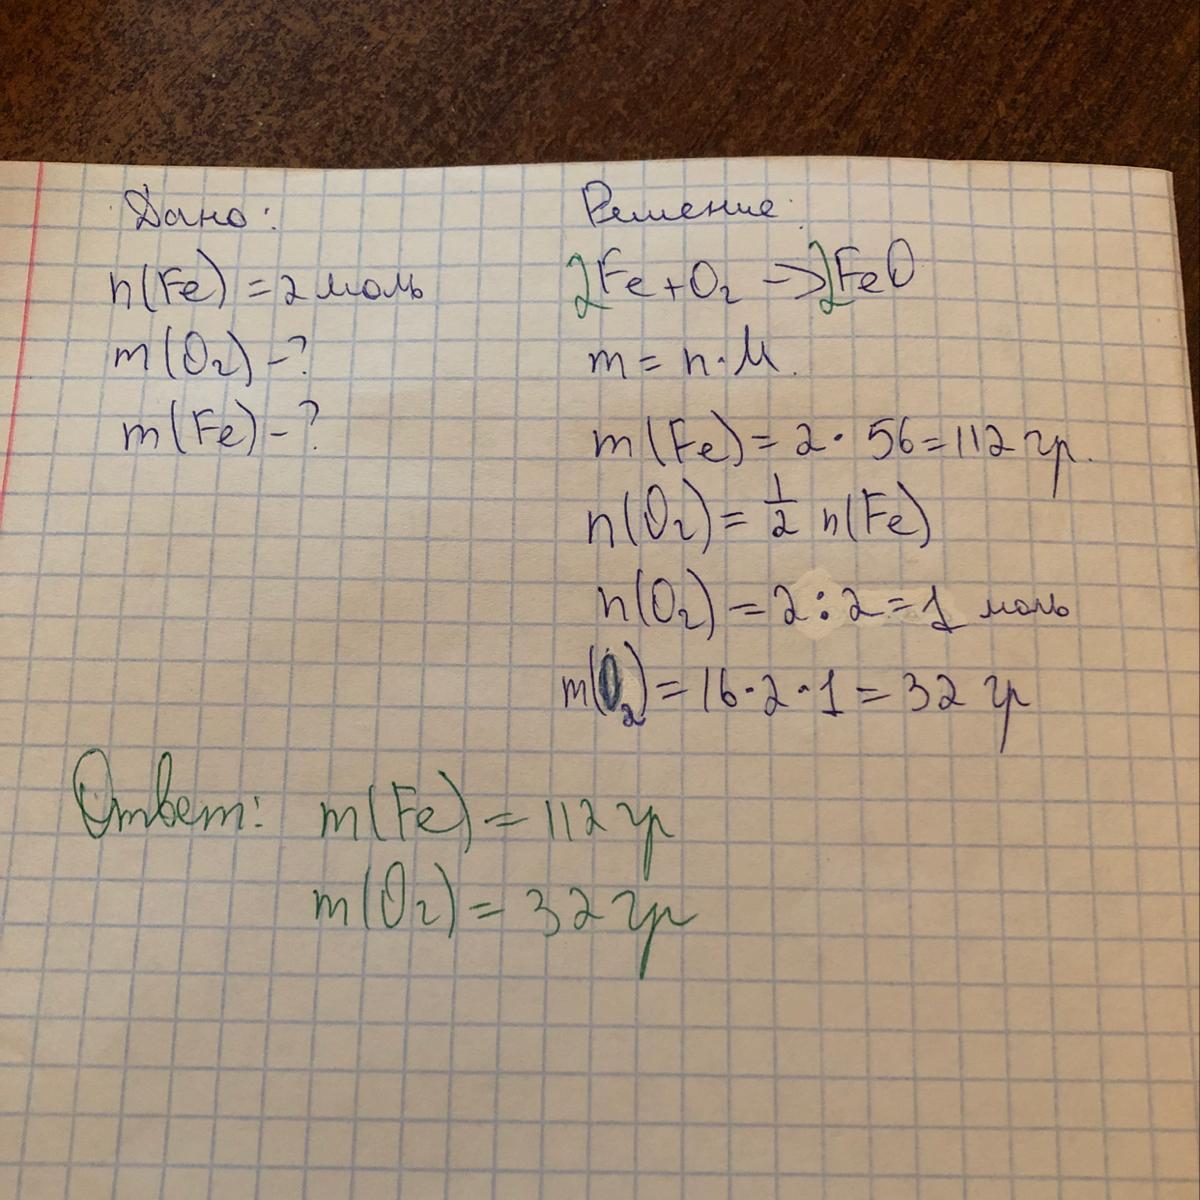 Дано:
n(Fe) = 2 моль
m(O₂) - ?
m(Fe) - ?
Решение:
2Fe + O₂ → 2FeO
m = n · M.
m(Fe) = 2 · 56 = 112 гр.
n(O₂) = 1/2 n(Fe)
n(O₂) = 2 : 2 = 1 моль
m(O₂) = 16 · 2 · 1 = 32 гр
Ответ: m(Fe) = 112 гр
m(O₂) = 32 гр